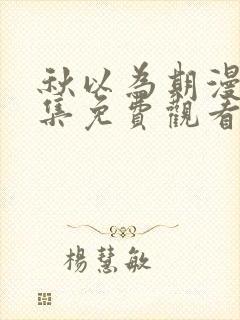 秋以為期漫
集免費觀看
楊慧敏